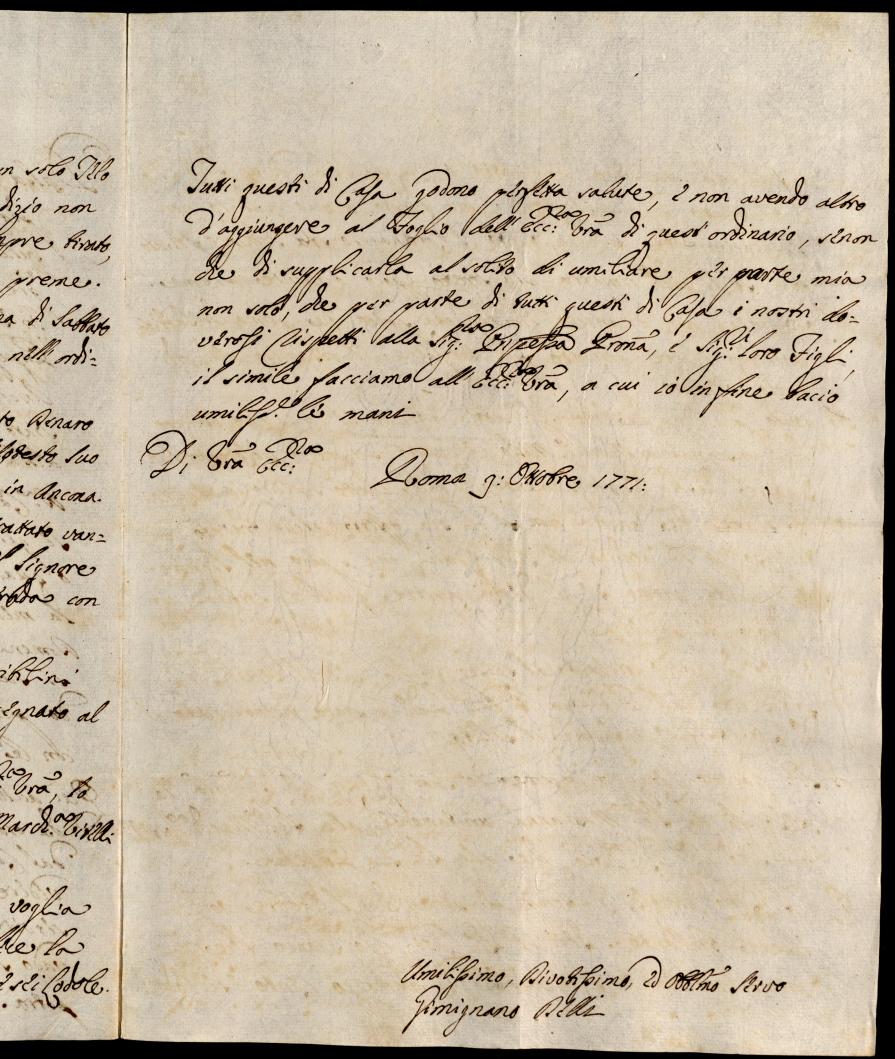 n solo Telo
dizio non
mpre tirato,
preme.
na di Sabbato
nell'ordi=
to Denaro
codesto suo
in Ancona.
rattato van=
l Signore
trada con
ibilini
segnato al
Vrã, to
March.
voglia
lie la
e sei Lodole.
Tutti questi di Casa godono perfetta salute, e non avendo altro
d'aggiungere al Foglio dell'Ecc: Vrã di quest'ordinario, senon
che di supplicarla al solito di umiliare per parte mia
non solo, che per parte di tutti questi di Casa i nostri do=
verosi rispetti alla Sig: Prñpessa Prona, e Sig:ri loro Figli,
il simile facciamo all'Ecc: Vrã, a cui io in fine bacio
umiliss:e le mani
Di Vrã Ecc:
Roma 9: Ottobre 1771:
Umilissimo, Divotissimo, ed Obblmõ Servo
Gimignano Belli